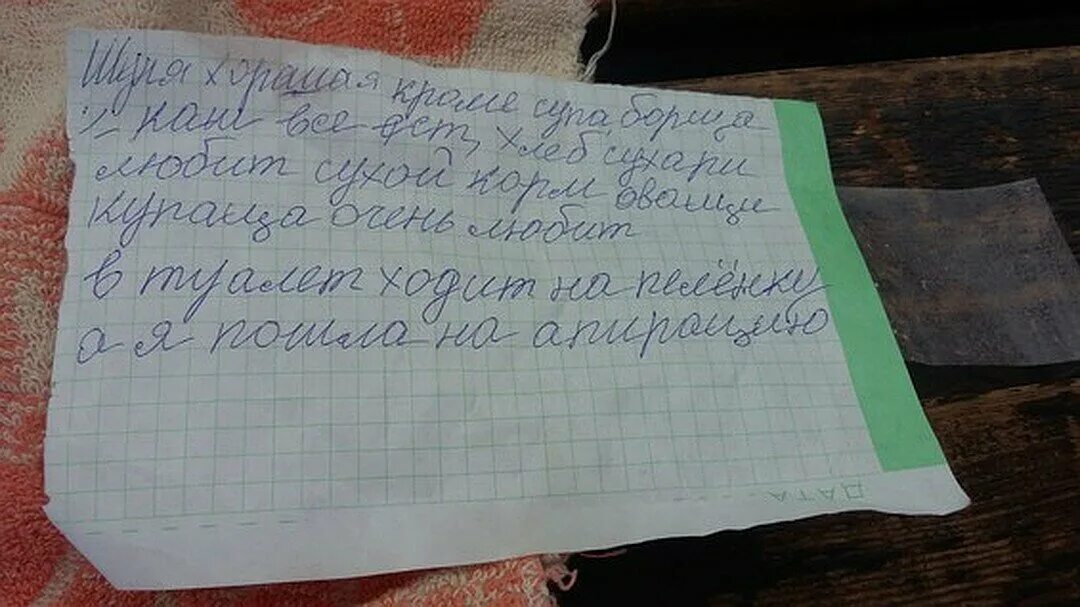 Шуля хорошая кроме супа борща
и каш все ест, хлеб, сухари
любит сухой корм оващи
купаца очень любит
в туалет ходит на пелёнку
а я пошла на апирацию
ДАТА